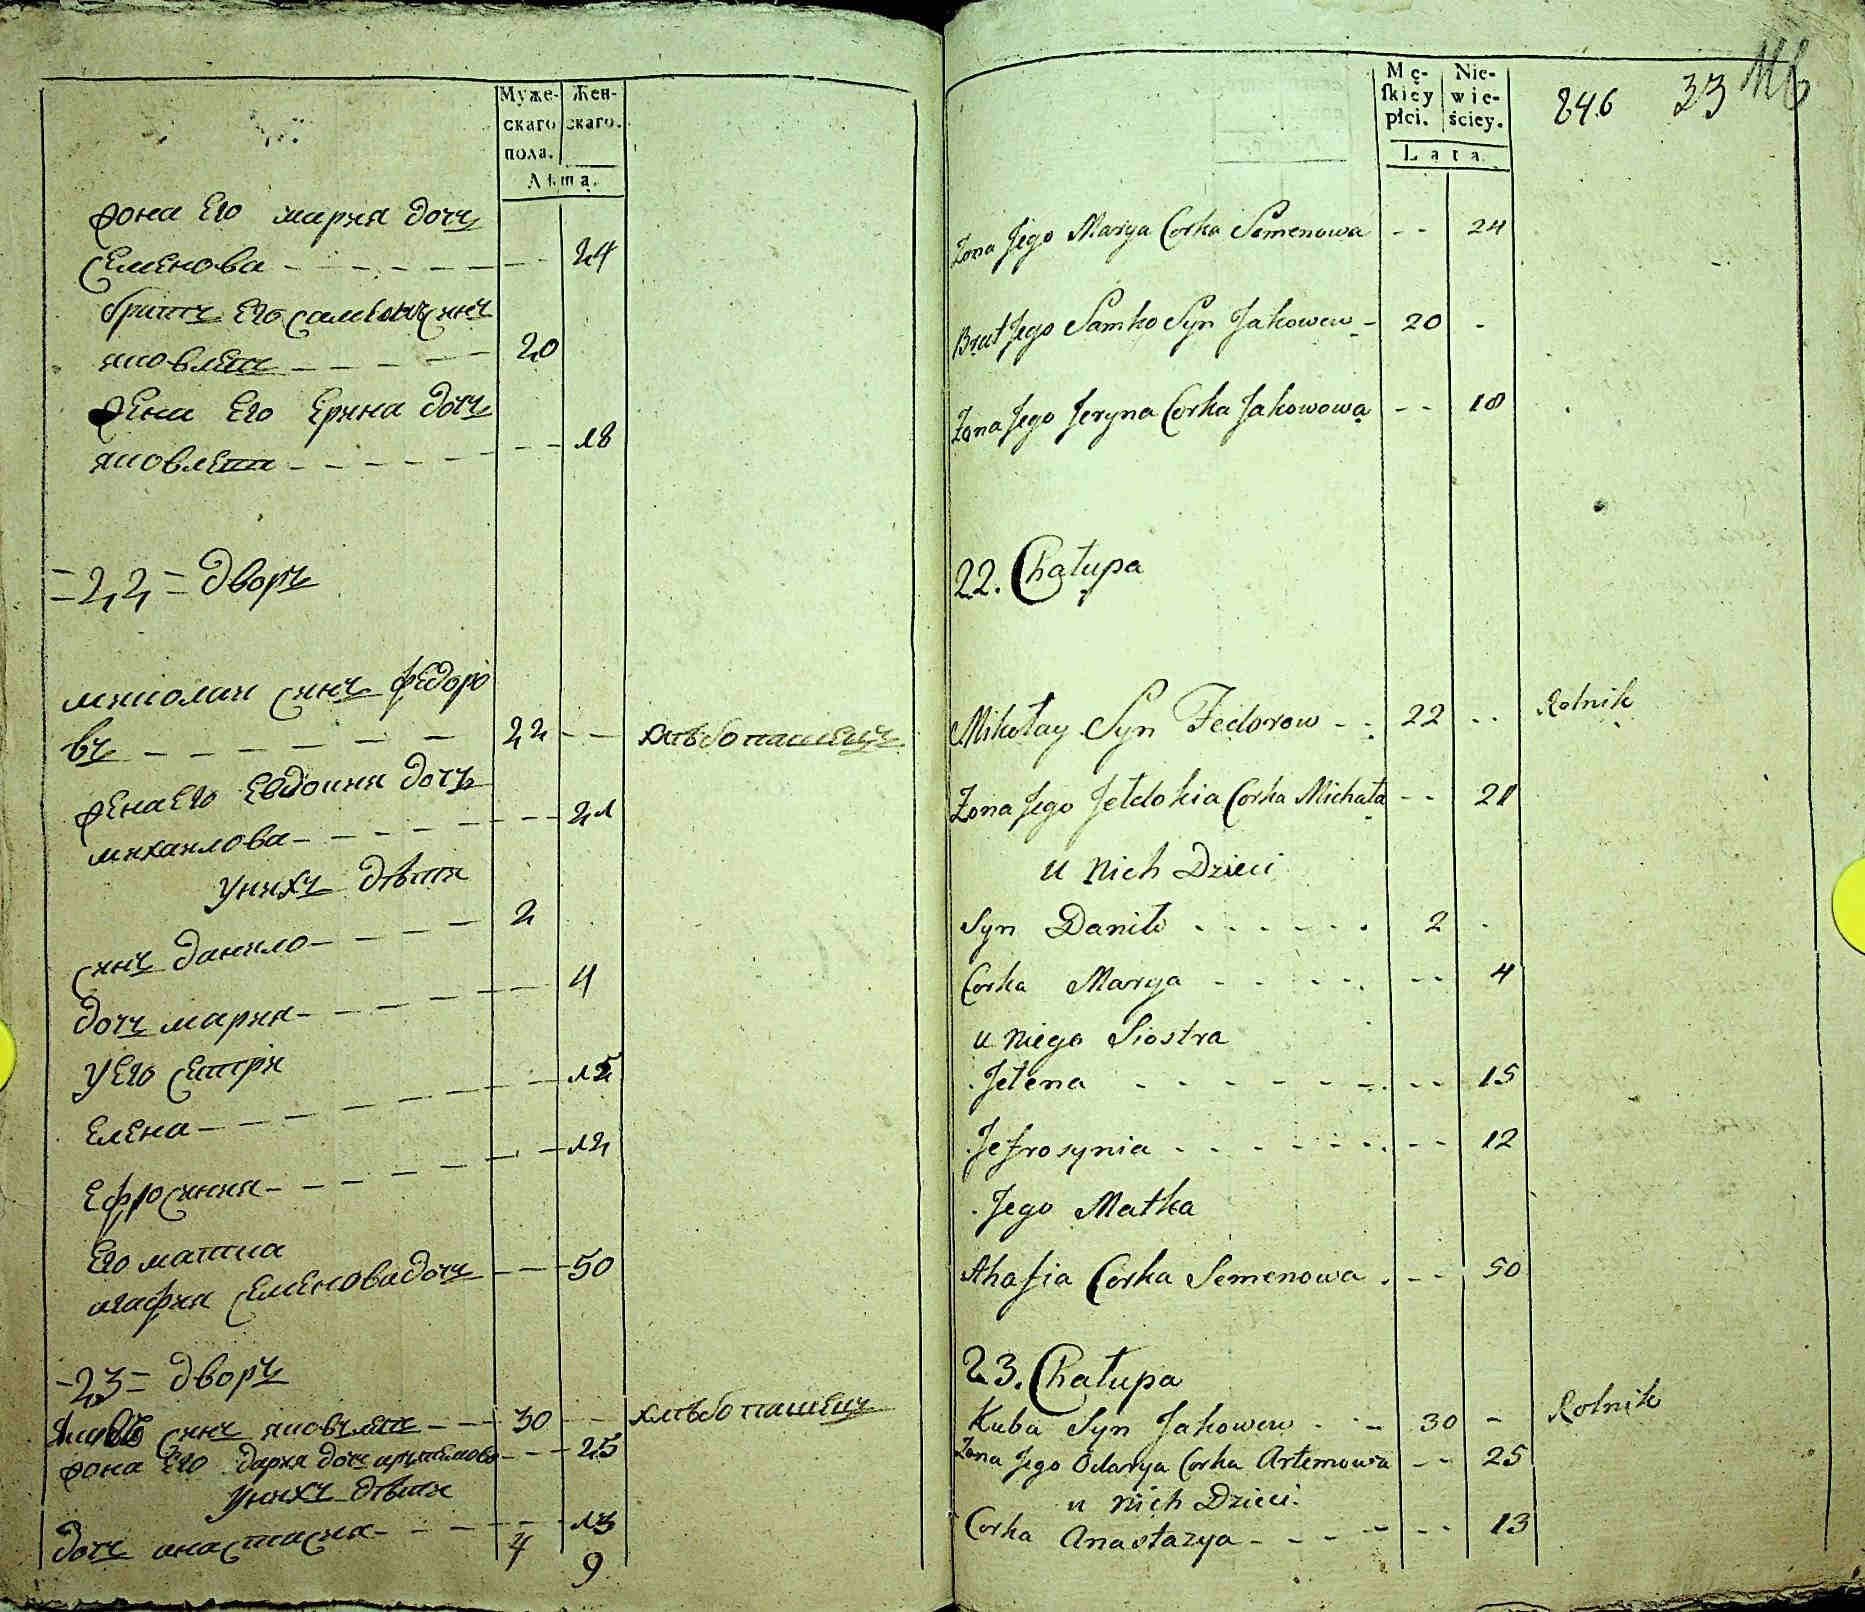 Муже-
скаго
пола.
Жен-
скаго.
Лѣта.
жона его мария дочъ
семенова - - - - - - - - 24
братъ его самконъ синъ
яковлевъ - - - - - 20
жена его ерина дочъ
яковлева - - - - - - - - 18
=22= дворъ
миколаи синъ федоро
въ - - - - - - 22 - - хлѣбопашецъ
жена его евдокия дочъ
михаилова - - - - - - - - 21
у нихъ дѣти
синъ данило - - - - - 2
дочъ мария - - - - - - - 4
у его сестри
елена - - - - - - - - 15
ефросиния - - - - - - - - 12
его матка
агафия семенова дочъ - - - 50
-23= дворъ
яковъ синъ яковълевъ - - 30 - - хлѣбопашецъ
жона его дария дочъ артемова - - - 25
у нихъ дѣти
дочъ анастасия - - - - - - 13
4
9
Mę-
skiey
płci.
Nie-
wie-
ściey.
Lata.
846 33
Żona Jego Marya Corka Semenowa - - 24
Brat Jego Samko Syn Jakowew - 20 -
Żona Jego Jeryna Corka Jakowowa - - 18
22. Chałupa
Mikołay Syn Fedorow - - 22 - - Rolnik
Żona Jego Jełdokia Corka Michała - - 21
u nich Dzieci
Syn Daniło - - - - - - 2 -
Corka Marya - - - - - - - 4
u niego Siostra
Jełena - - - - - - - - - 15
Jefrosynia - - - - - - - - 12
Jego Matka
Ahafia Corka Semenowa - - - 50
23. Chałupa
Kuba Syn Jakowew - - - 30 - Rolnik
Żona Jego Odarya Corka Artemowa - - 25
u nich Dzieci.
Corka Anastazya - - - - - - 13